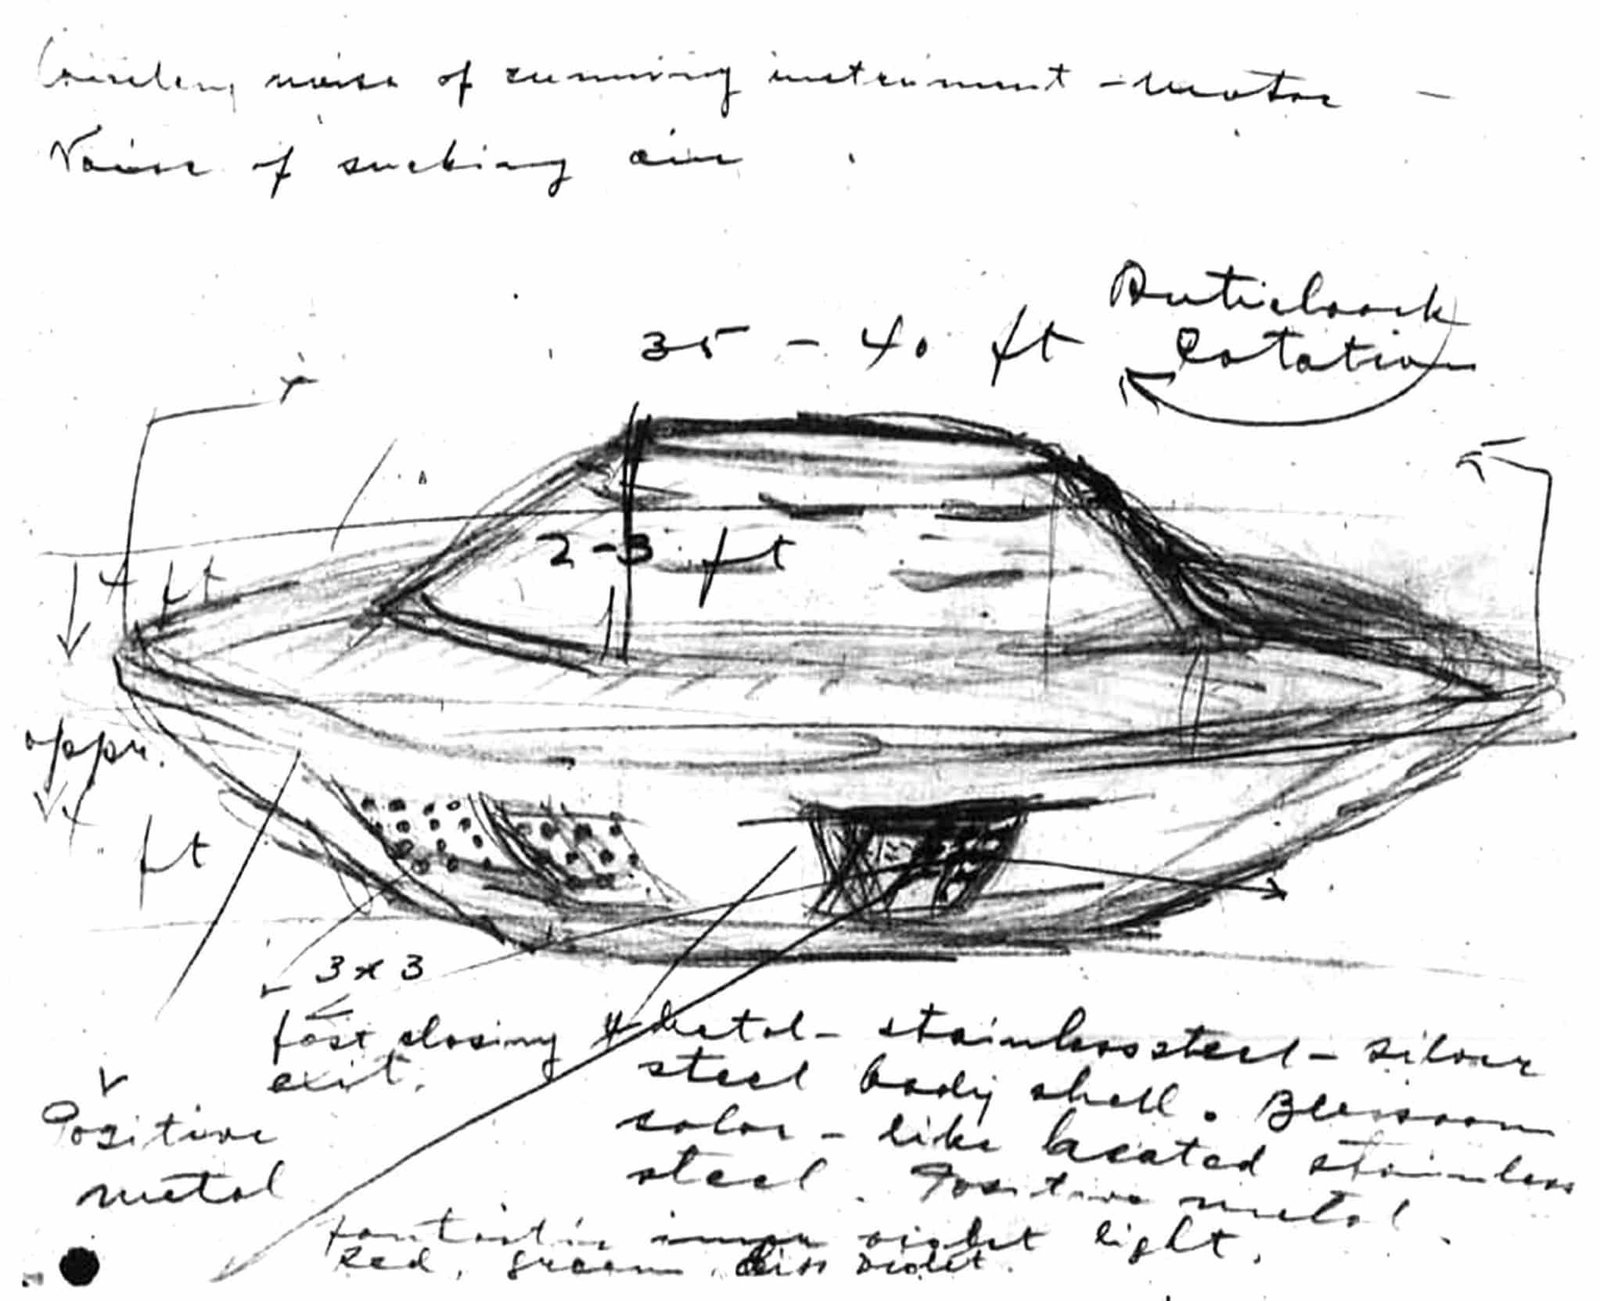 noise of running instrument - motor -
Noise of sucking air
Anticlock
Rotation
35 - 40 ft
2-3 ft
4 ft
appr.
4 ft
3 x 3
fast closing
exit.
Positive
metal
metal - stainless steel - silver
steel body shell.
color - like heated stainless
steel. Positive metal
fantastic inner violet light,
Red, green, violet.